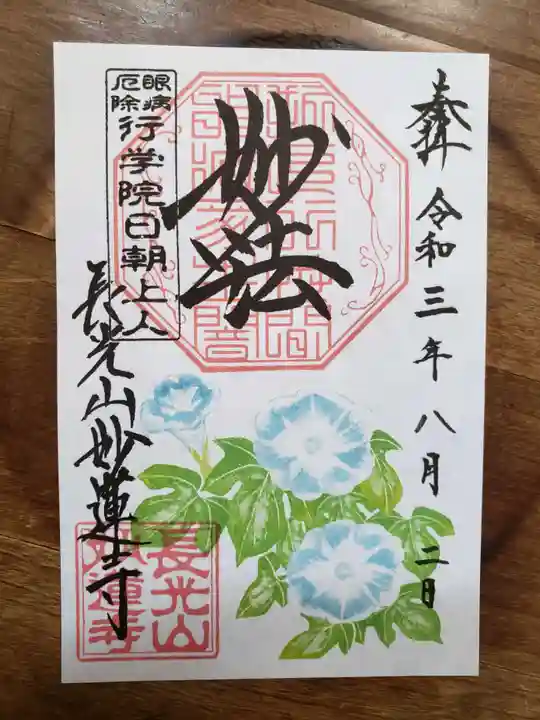 奉拝 令和三年八月二日
妙法
眼病
厄除
行学院日朝上人
長光山妙蓮寺
長光山
妙蓮寺